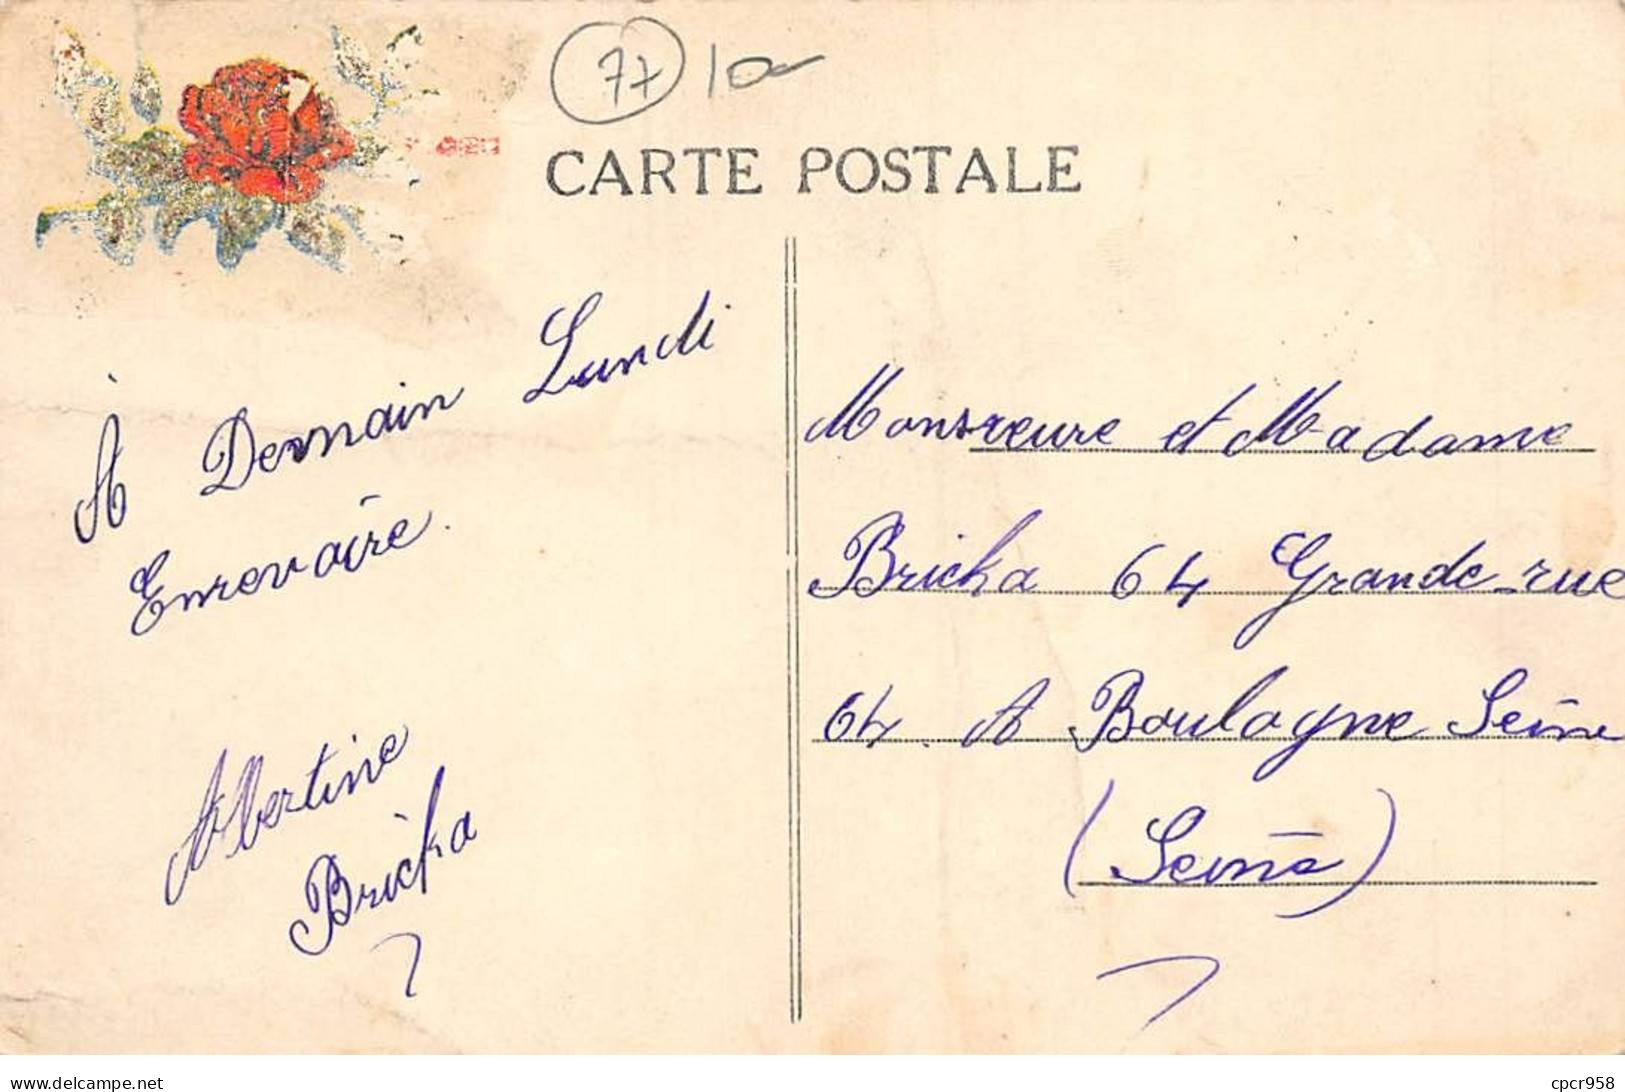 77 10
CARTE POSTALE
À Demain Lundi
Enrevoire.
Albertine
Bricka
Monsreure et Madame
Bricka 64 Grande-rue
64. A Boulogne Seine
(Seine)
www.delcampe.net
cpcr958